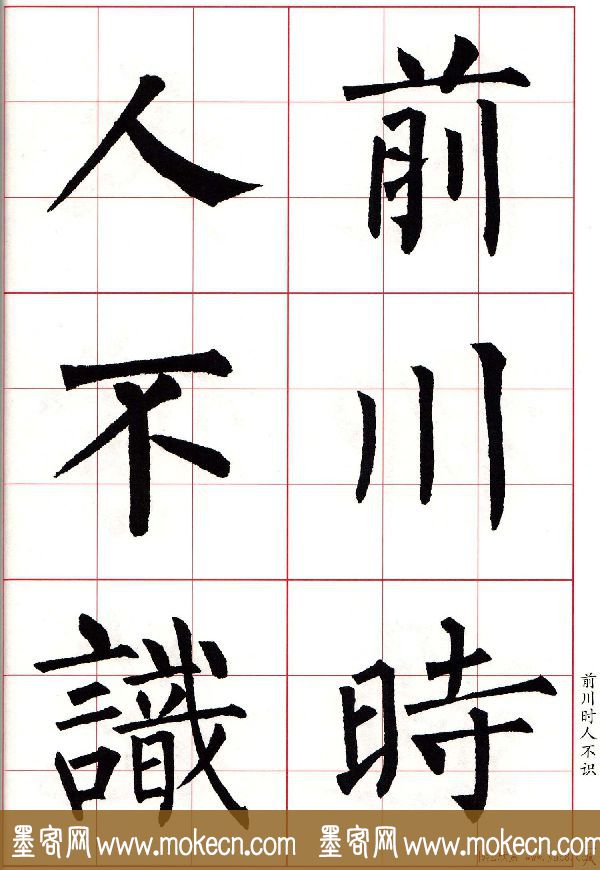 前川時
人不識
前川时人不识
墨客网 www.mokecn.com 墨客网 www.mokecn.com